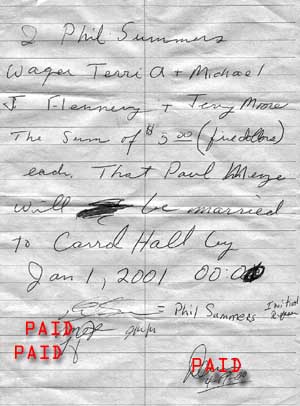 I Phil Summers
Wager Terri A + Michael
J Flennery + Terry Moore
The Sum of $5.00 (five dollars)
each. That Paul
will be married
to Carrol Hall by
Jan 1, 2001 00:00
= Phil Summers
PAID
PAID
PAID